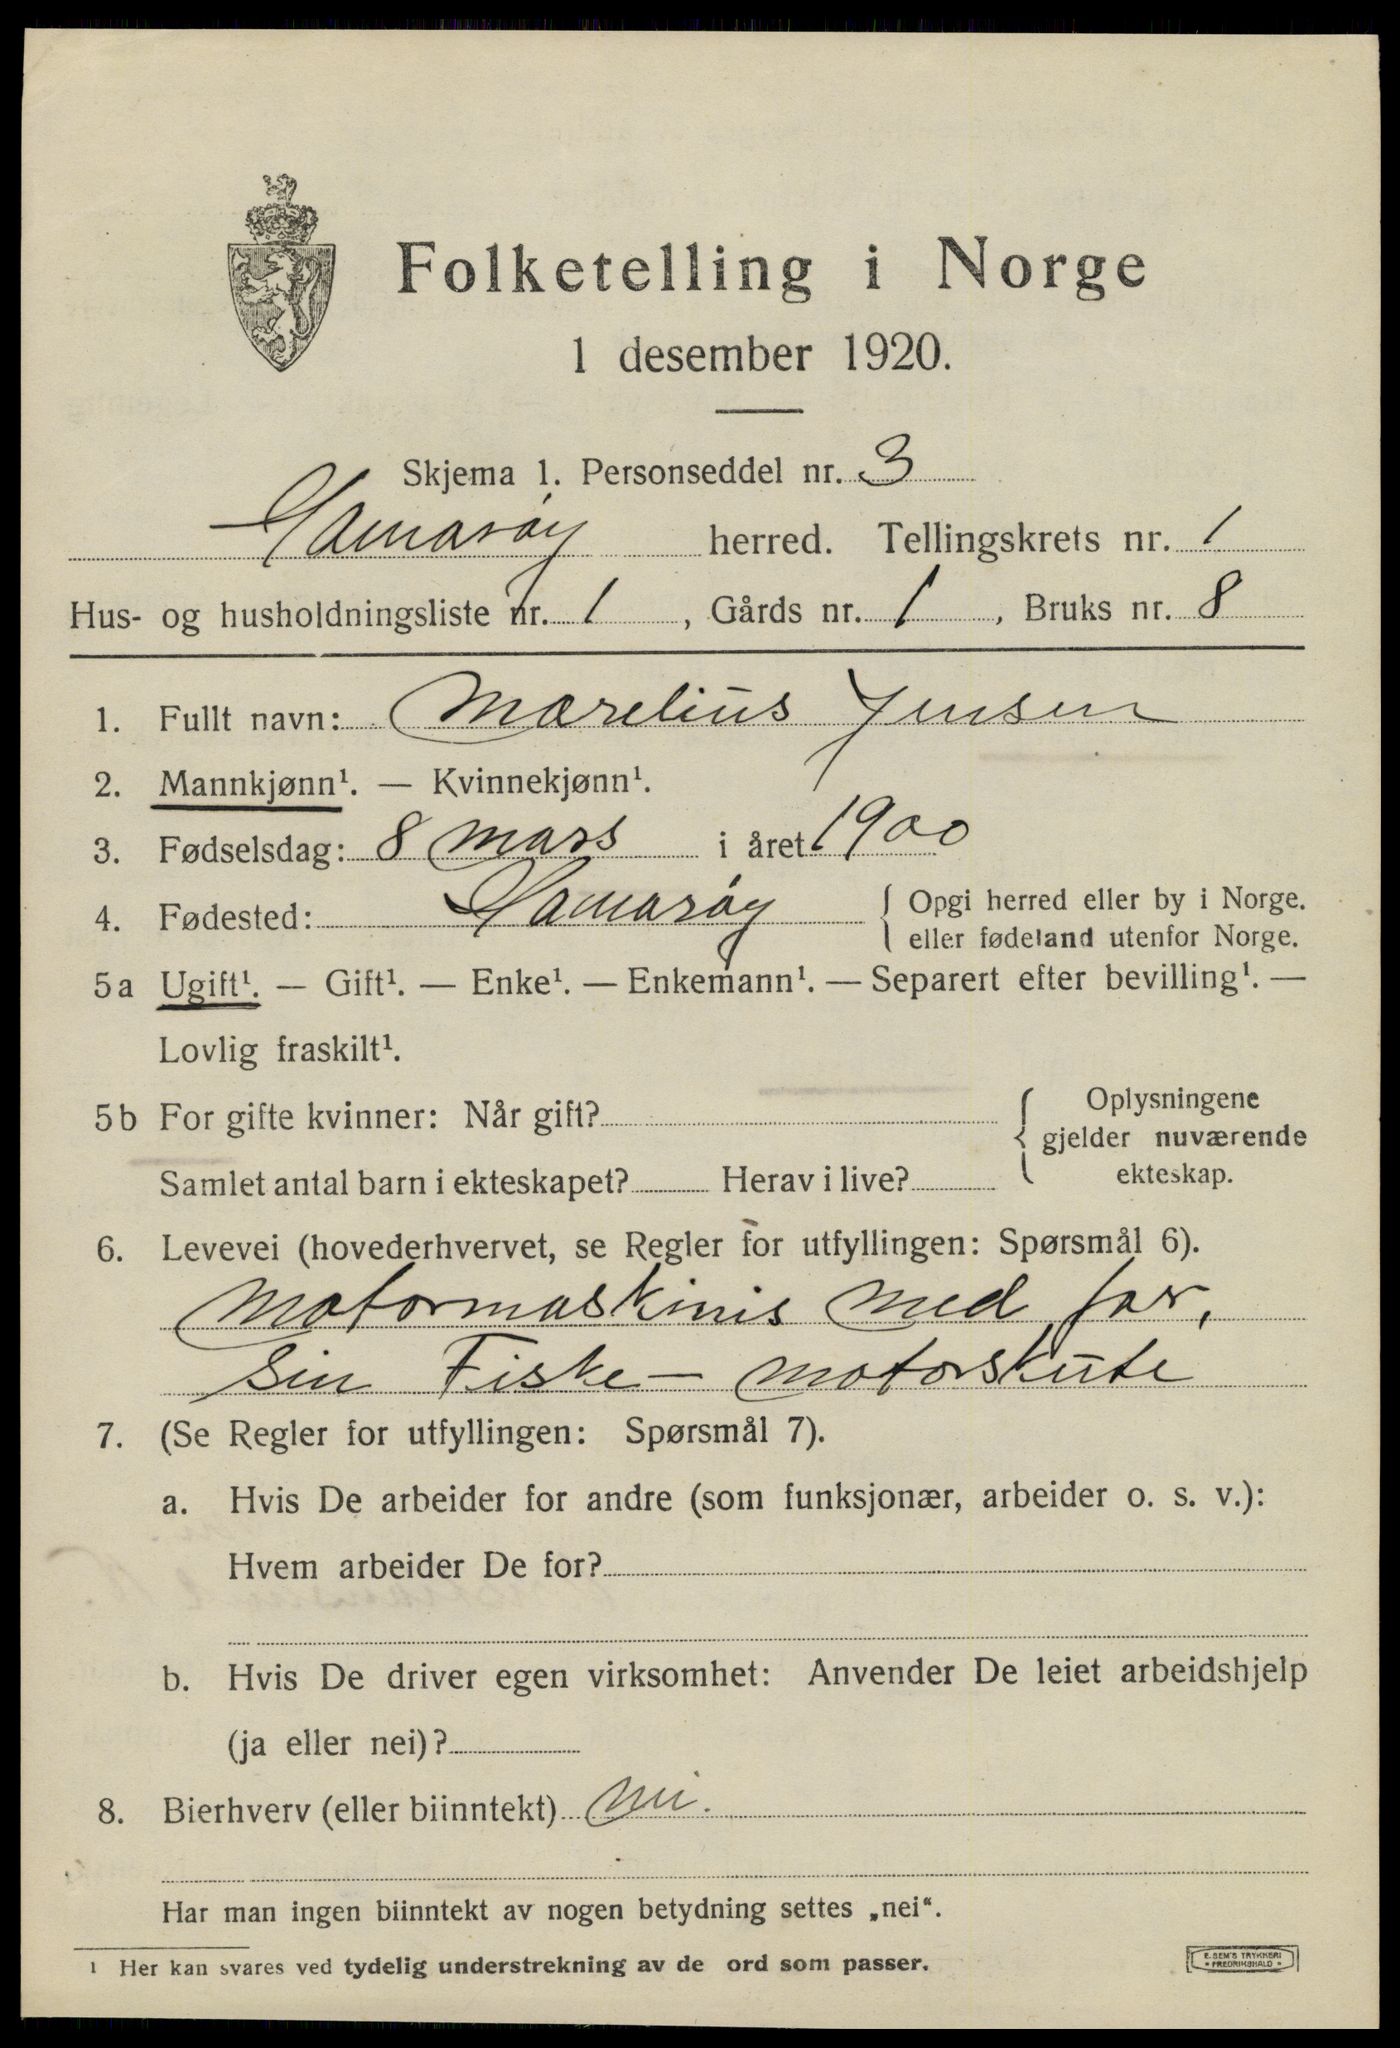 Folketelling i Norge
1 desember 1920.
Skjema 1. Personseddel nr. 3
Hamarøy herred. Tellingskrets nr. 1
Hus- og husholdningsliste nr. 1, Gårds nr. 1, Bruks nr. 8
1. Fullt navn: Marelius Jensen
2. Mannkjønn¹. — Kvinnekjønn¹.
3. Fødselsdag: 8 mars i året 1900
4. Fødested: Hamarøy { Opgi herred eller by i Norge.
eller fødeland utenfor Norge.
5a Ugift¹. — Gift¹. — Enke¹. — Enkemann¹. — Separert efter bevilling¹. —
Lovlig fraskilt¹.
5b For gifte kvinner: Når gift? { Oplysningene
gjelder nuværende
ekteskap.
Samlet antal barn i ekteskapet? Herav i live?
6. Levevei (hovederhvervet, se Regler for utfyllingen: Spørsmål 6).
Motormaskinis med far,
sin Fiske- motorskute
7. (Se Regler for utfyllingen: Spørsmål 7).
a. Hvis De arbeider for andre (som funksjonær, arbeider o. s. v.):
Hvem arbeider De for?
b. Hvis De driver egen virksomhet: Anvender De leiet arbeidshjelp
(ja eller nei)?
8. Bierhverv (eller biinntekt) nei.
Har man ingen biinntekt av nogen betydning settes „nei“.
¹ Her kan svares ved tydelig understrekning av de ord som passer.
E. SEM'S TRYKKERI
• FREDRIKSHALD •